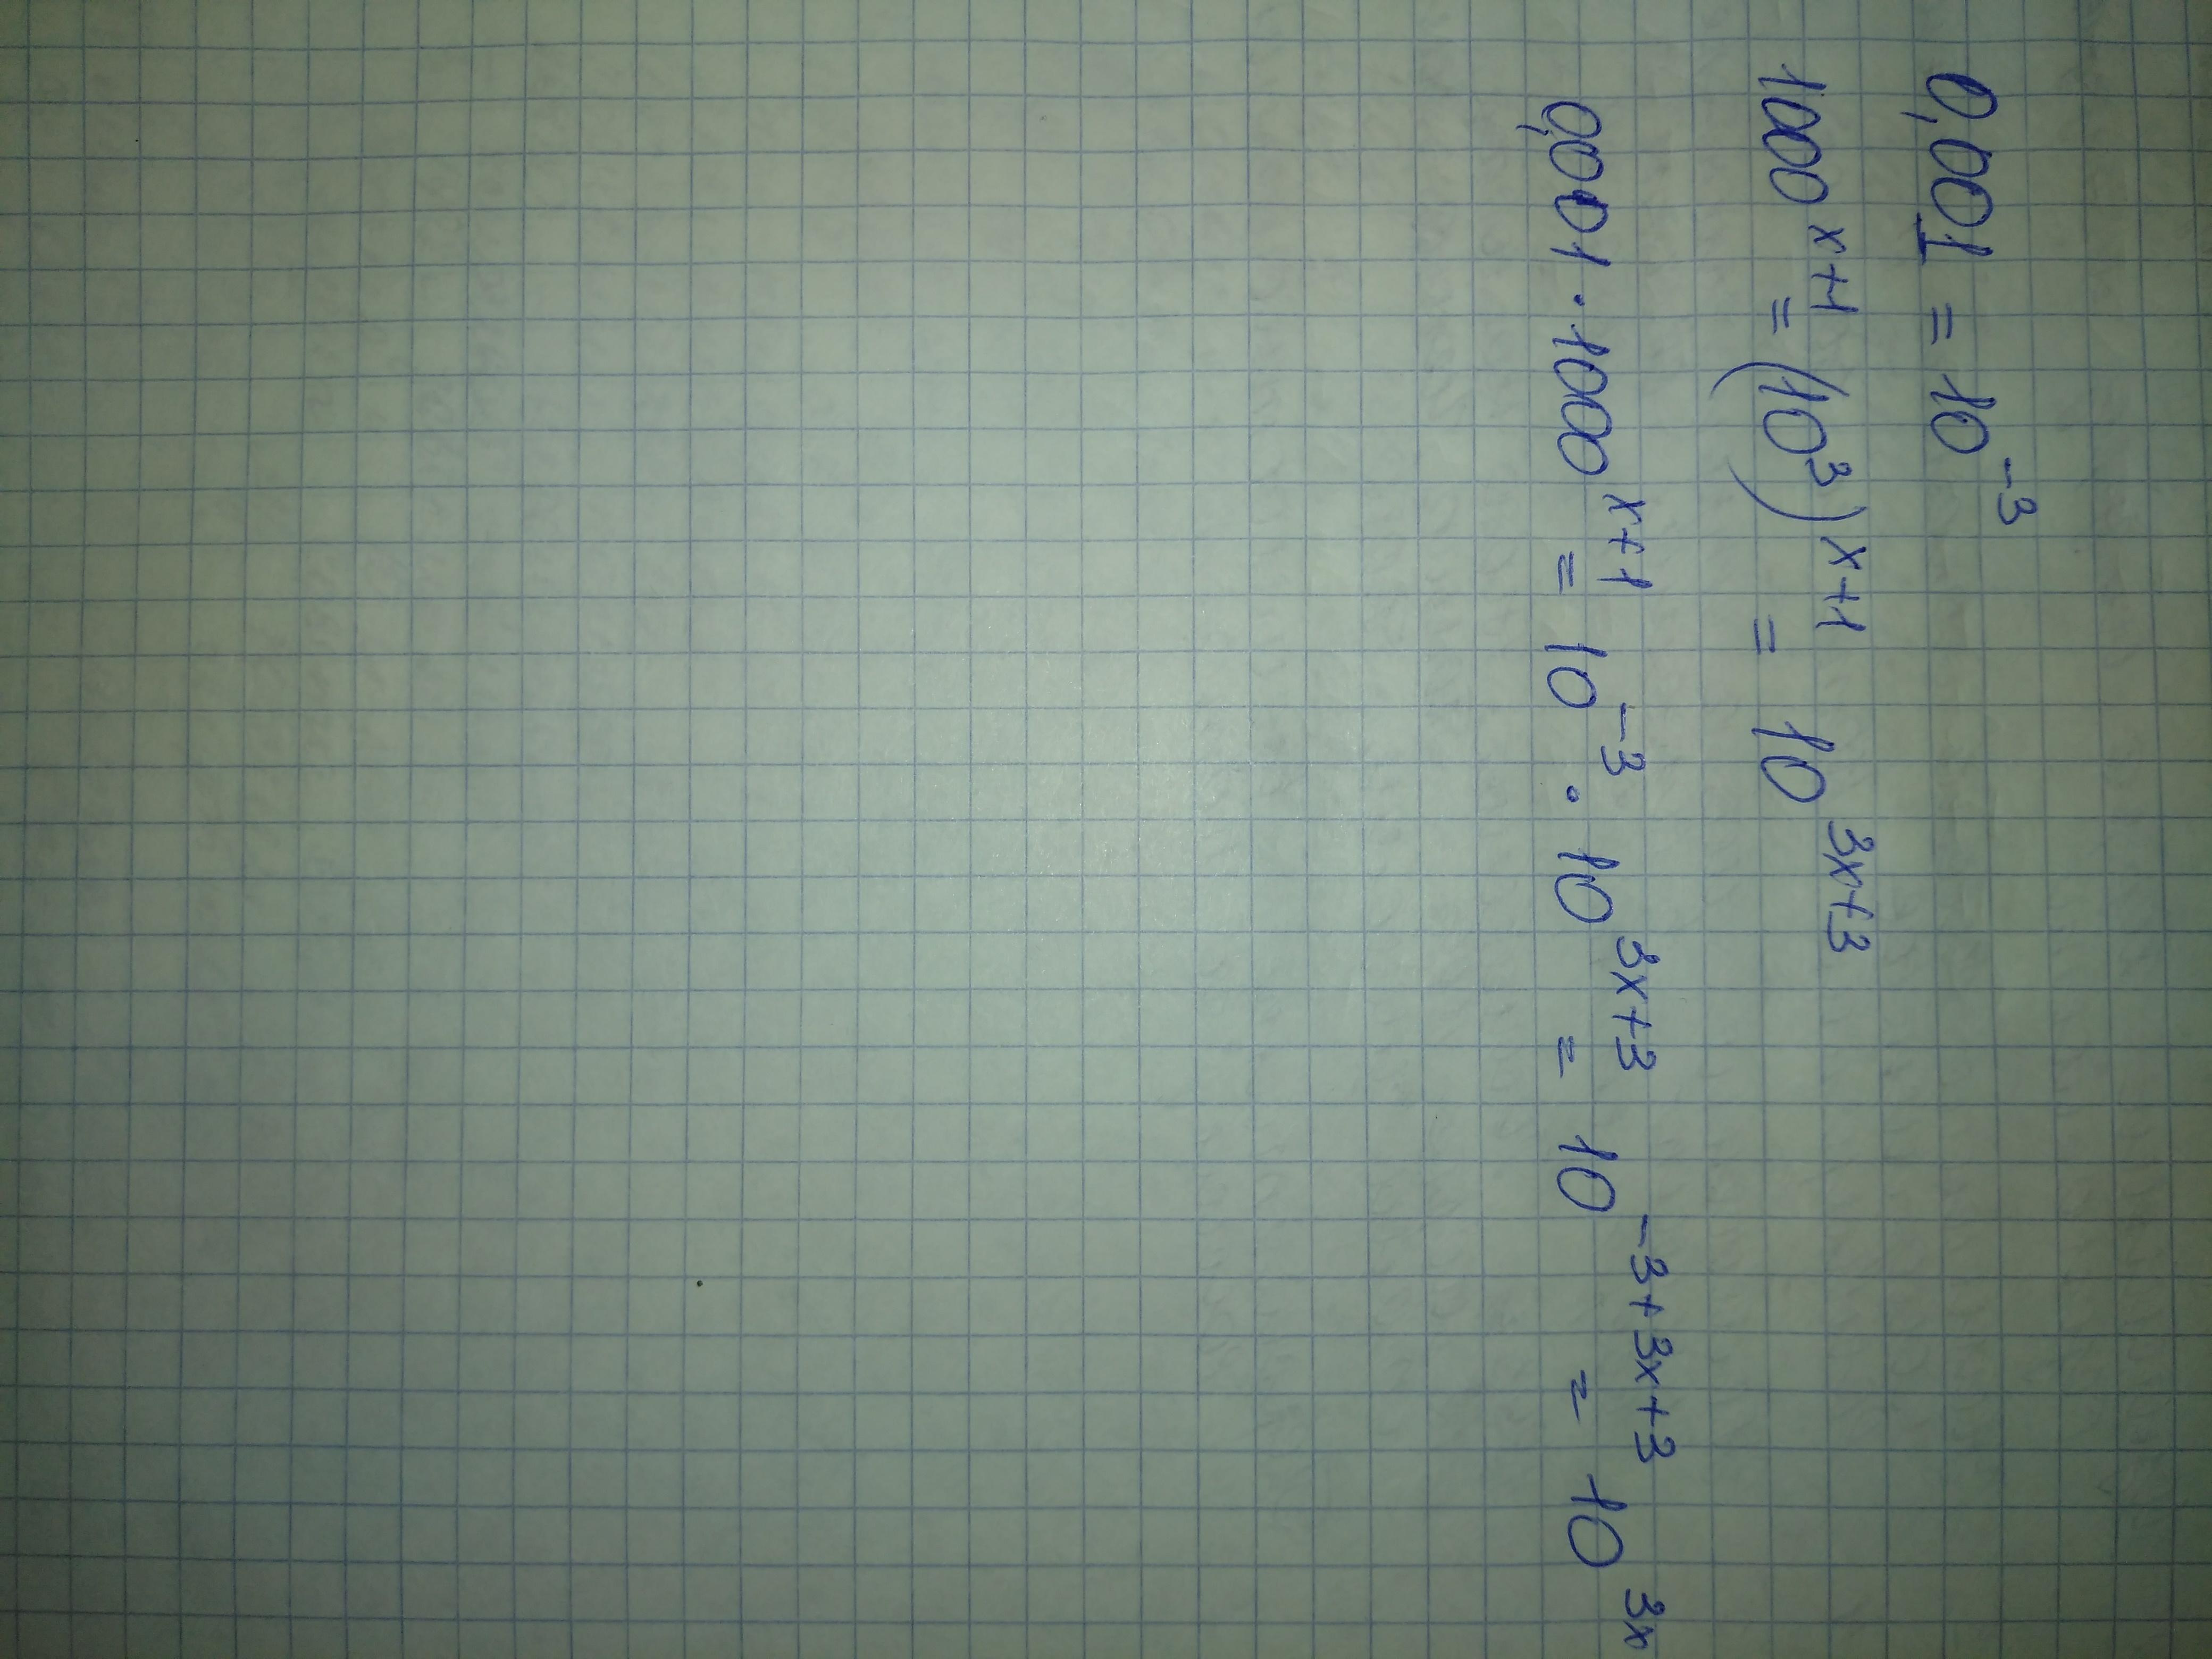 0,001 = 10⁻³
1000ˣ⁺¹ = (10³)ˣ⁺¹ = 10³ˣ⁺³
0,001 · 1000ˣ⁺¹ = 10⁻³ · 10³ˣ⁺³ = 10⁻³⁺³ˣ⁺³ = 10³ˣ